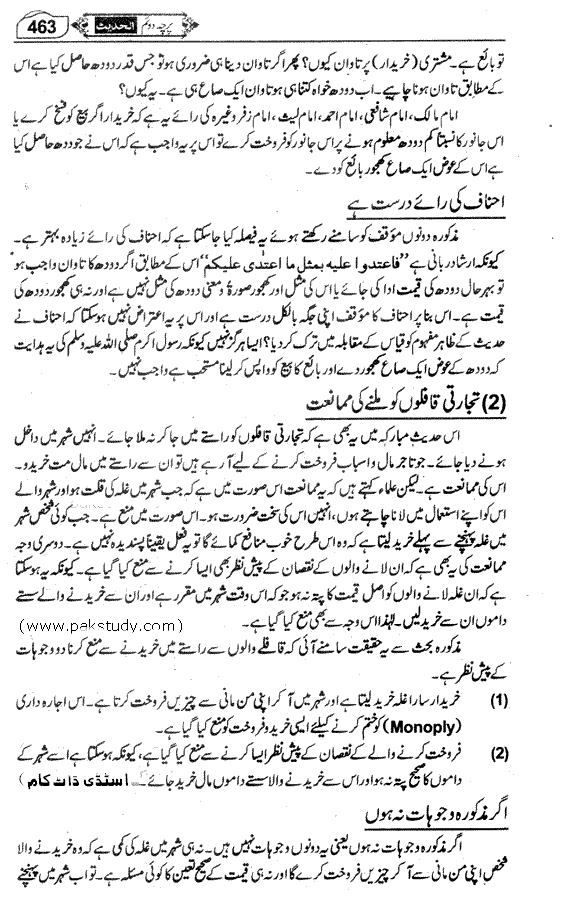 پرچہ دوئم الحدیث 463
تو بائع ہے۔ مشتری (خریدار) پر تاوان کیوں؟ پھر اگر تاوان دینا ہی ضروری ہو تو جس قدر دودھ حاصل کیا ہے اس
کے مطابق تاوان ہونا چاہیے۔ اب دودھ خواہ کتنا ہی ہو تاوان ایک صاع ہی ہے۔ یہ کیوں؟
امام مالک، امام شافعی، امام احمد، امام لیث، امام زفر وغیرہ کی رائے یہ ہے کہ خریدار اگر بیع کو فسخ کرے یا
اس جانور کا نسبتاً کم دودھ معلوم ہونے پر اس جانور کو فروخت کرے تو اس پر یہ واجب ہے کہ اس نے جو دودھ حاصل کیا
ہے اس کے عوض ایک صاع کھجور بائع کو دے۔
احناف کی رائے درست ہے
مذکورہ دونوں مؤقف کو سامنے رکھتے ہوئے یہ فیصلہ کیا جا سکتا ہے کہ احناف کی رائے زیادہ بہتر ہے۔
کیونکہ ارشاد ربانی ہے ”فاعتدوا علیہ بمثل ما اعتدی علیکم“ اس کے مطابق اگر دودھ کا تاوان واجب ہو
تو بہر حال دودھ کی قیمت ادا کی جائے یا اس کی مثل اور کھجور صورۃً و معنی دودھ کی مثل نہیں ہے اور نہ ہی کھجور دودھ کی
قیمت ہے۔ اس بنا پر احناف کا مؤقف اپنی جگہ بالکل درست ہے اور اس پر یہ اعتراض نہیں ہو سکتا کہ احناف نے
حدیث کے ظاہر مفہوم کو قیاس کے مقابلہ میں ترک کر دیا؟ ایسا ہرگز نہیں کیونکہ رسول اکرم صلی اللہ علیہ وسلم کی یہ ہدایت
کہ دودھ کے عوض ایک صاع کھجور دے اور بائع کا بیع کو واپس کر لینا مستحب ہے واجب نہیں۔
(2) تجارتی قافلوں کو ملنے کی ممانعت
اس حدیث مبارکہ میں یہ بھی ہے کہ تجارتی قافلوں کو راستے میں جا کر نہ ملا جائے۔ انہیں شہر میں داخل
ہونے دیا جائے۔ جو تاجر مال و اسباب فروخت کرنے کے لیے آ رہے ہیں تو ان سے راستے میں مال مت خریدو۔
اس کی ممانعت ہے۔ لیکن علماء کہتے ہیں کہ یہ ممانعت اس صورت میں ہے کہ جب شہر میں غلہ کی قلت ہو اور شہر والے
اس کو اپنے استعمال میں لانا چاہتے ہوں، انہیں اس کی سخت ضرورت ہو۔ اس صورت میں منع ہے۔ جب کوئی شخص شہر
میں غلہ پہنچنے سے پہلے خرید لیتا ہے کہ وہ اس طرح خوب منافع کمائے گا تو یہ فعل یقیناً پسندیدہ نہیں ہے۔ دوسری وجہ
ممانعت کی یہ بھی ہے کہ ان لانے والوں کے نقصان کے پیش نظر بھی ایسا کرنے سے منع کیا گیا ہے۔ کیونکہ یہ ہو سکتا
ہے کہ ان غلہ لانے والوں کو اصل قیمت کا پتہ نہ ہو جو کہ اس وقت شہر میں مقرر ہے اور ان سے خریدنے والے سستے
داموں ان سے خرید لیں۔ لہٰذا اس وجہ سے بھی منع کیا گیا ہے۔ (www.pakstudy.com)
مذکورہ بحث سے یہ حقیقت سامنے آئی کہ قافلے والوں سے راستے میں خریدنے سے منع کرنا دو وجوہات
کے پیش نظر ہے۔
(1) خریدار سارا غلہ خرید لیتا ہے اور شہر میں آ کر اپنی من مانی سے چیزیں فروخت کرتا ہے۔ اس اجارہ داری
(Monoply) کو ختم کرنے کیلئے ایسی خرید و فروخت کو منع کیا گیا ہے۔
(2) فروخت کرنے والے کے نقصان کے پیش نظر ایسا کرنے سے منع کیا گیا ہے، کیونکہ ہو سکتا ہے اسے شہر کے
داموں کا صحیح پتہ نہ ہو اور اس سے خریدنے والا سستے داموں مال خرید جائے۔ اسٹڈی ڈاٹ کام )
اگر مذکورہ وجوہات نہ ہوں
اگر مذکورہ وجوہات نہ ہوں یعنی یہ دونوں وجوہات نہیں ہیں۔ نہ ہی شہر میں غلہ کی کمی ہے کہ وہ خریدنے والا
شخص اپنی من مانی سے آ کر چیزیں فروخت کرے گا اور نہ ہی قیمت کے صحیح تعین کا کوئی مسئلہ ہے۔ تو اب شہر میں پہنچنے